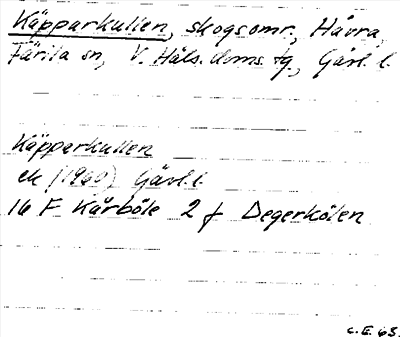 Käpparkullen, skogsomr., Håvra,
Färila sn, V. Häls. doms. tg., Gävl. l.
Käpparkullen
ek (1960) Gävl. l.
16 F Kårböle 2 f Degerkölen
C.E. 63.